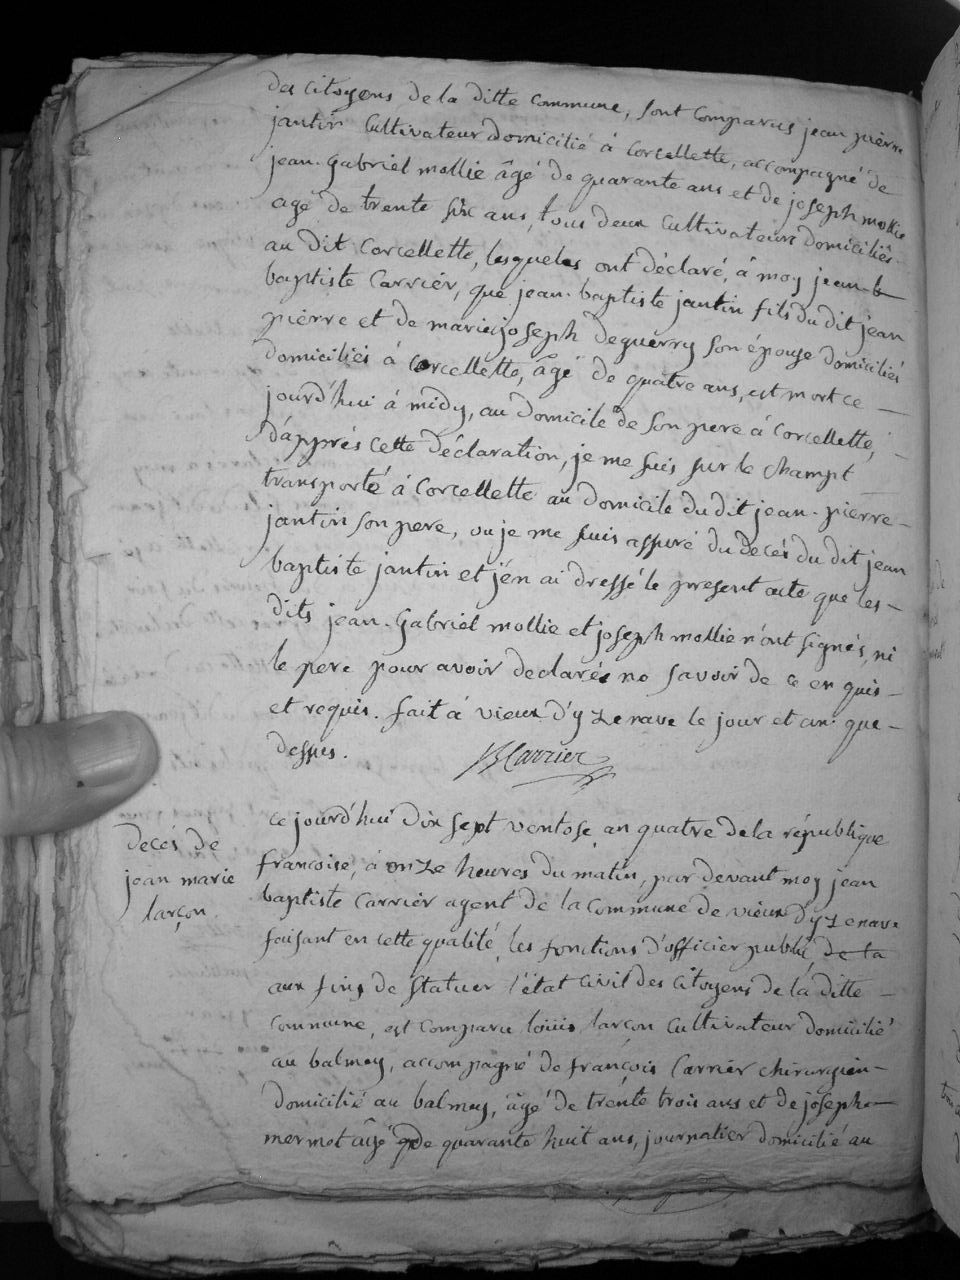 des citoyens de la ditte commune, sont comparus jean pierre
jantin Cultivateur domicilié à Corcellette, accompagné de
jean-Gabriel mollie âgé de quarante ans et de joseph mollie
agé de trente six ans, tous deux Cultivateurs domiciliés
au dit Corcellette, lesqueles ont déclaré, à moy jean-b
baptiste Carrier, que jean-baptiste jantin fils du dit jean
pierre et de marie joseph deguerry son épouse domiciliés
domiciliés à Corcellette, âgé de quatre ans, est mort ce —
jourd'hui à midy, au domicile de son pere à Corcellette,
d'apprés cette déclaration, je me suis sur le champt
transporté à Corcellette au domicile du dit jean-pierre —
jantin son pere, ou je me suis assuré du decés du dit jean
baptiste jantin et j'en ai dressé le present acte que les —
dits jean-Gabriel mollie et joseph mollie n'ont signés, ni
le pere pour avoir declarés no savoir de ce enquis —
et requis. fait à vieux d'yzenave le jour et an que —
dessus.
JBCarrier
decés de
jean marie
larçon.
ce jourd'hui dix sept ventose, an quatre de la république
francoise, à onze heures du matin, par devant moy jean
baptiste Carrier agent de la Commune de vieux d'yzenave
faisant en cette qualité, les fonctions d'officier public, de la
aux fins de statuer l'état civil des citoyens de la ditte —
Commune, est comparu loüis larçon Cultivateur domicilié
au balmay, accompagné de françois Carrier chirurgien —
domicilié au balmay, âgé de trente trois ans et de joseph —
mermet âgé de quarante huit ans, journalier domicilié au